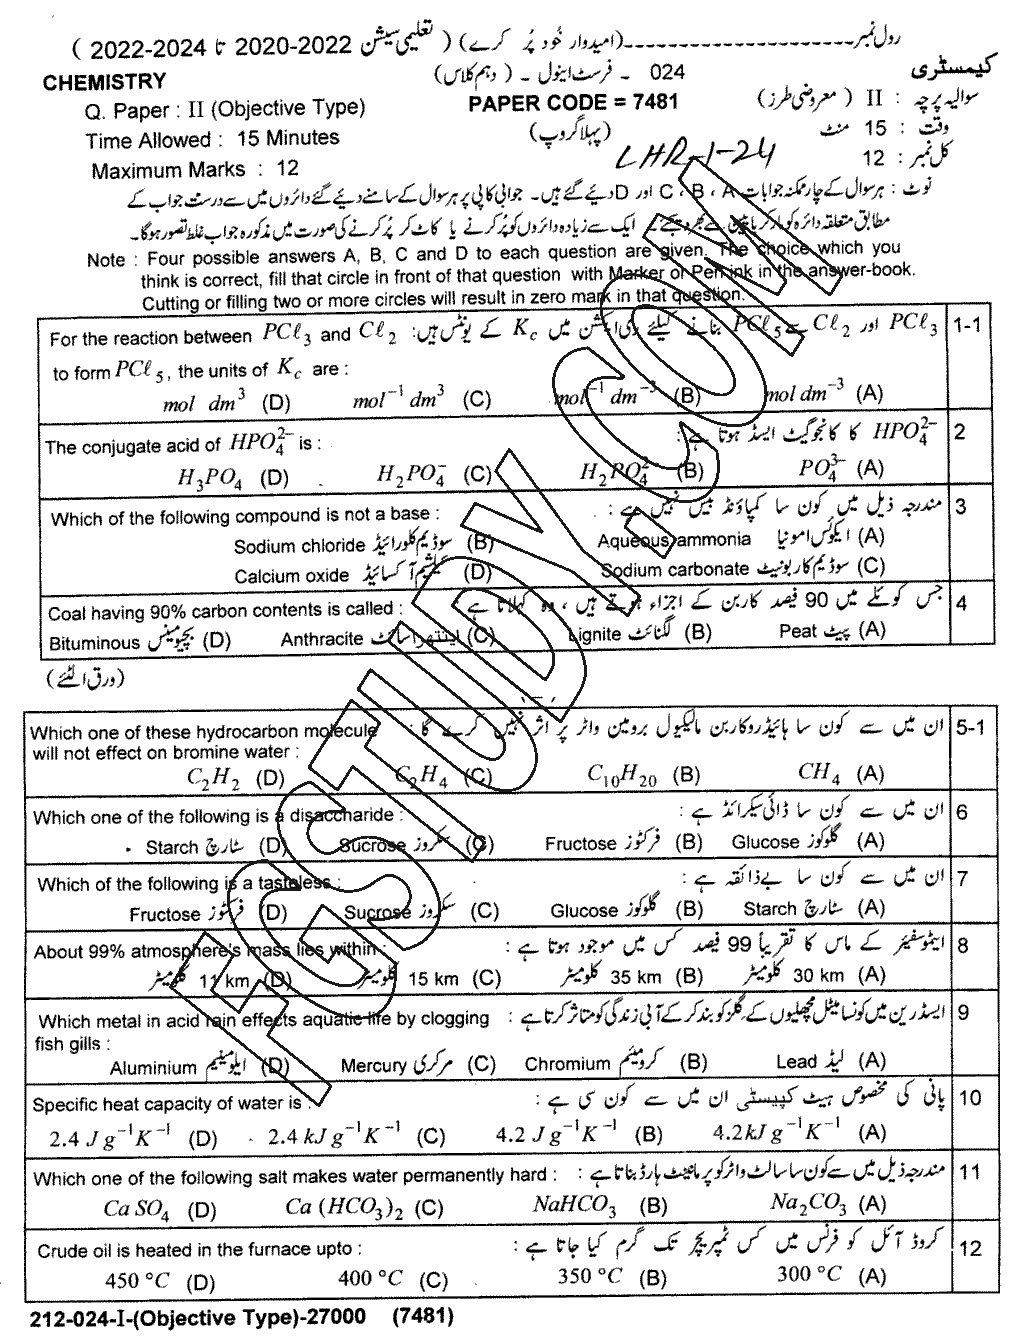 رول نمبر ---------------------(امیدوار خود پُر کرے) ( تعلیمی سیشن 2022-2020 تا 2024-2022 )
CHEMISTRY 024 - فرسٹ اینول - (دہم کلاس) کیمسٹری
Q. Paper : II (Objective Type) PAPER CODE = 7481 سوالیہ پرچہ : II ( معروضی طرز)
Time Allowed : 15 Minutes (پہلا گروپ) وقت : 15 منٹ
Maximum Marks : 12 LHR-1-24 کل نمبر : 12
نوٹ : ہر سوال کے چار ممکنہ جوابات A ، B ، C اور D دیئے گئے ہیں۔ جوابی کاپی پر ہر سوال کے سامنے دیئے گئے دائروں میں سے درست جواب کے
مطابق متعلقہ دائرہ کو مارکر یا پین سے بھر دیجئے۔ ایک سے زیادہ دائروں کو پُر کرنے یا کاٹ کر پُر کرنے کی صورت میں مذکورہ جواب غلط تصور ہوگا۔
Note : Four possible answers A, B, C and D to each question are given. The choice which you
think is correct, fill that circle in front of that question with Marker or Pen ink in the answer-book.
Cutting or filling two or more circles will result in zero mark in that question.
For the reaction between PCℓ₃ and Cℓ₂ PCℓ₃ اور Cℓ₂ سے PCℓ₅ بنانے کیلئے ری ایکشن میں K_c کے یونٹس ہیں: 1-1
to form PCℓ₅, the units of K_c are :
mol dm³ (D) mol⁻¹ dm³ (C) mol⁻¹ dm⁻³ (B) mol dm⁻³ (A)
The conjugate acid of HPO₄²⁻ is : HPO₄²⁻ کا کانجوگیٹ ایسڈ ہوتا ہے: 2
H₃PO₄ (D) H₂PO₄⁻ (C) H₂PO₄²⁻ (B) PO₄³⁻ (A)
Which of the following compound is not a base : مندرجہ ذیل میں کون سا کمپاؤنڈ بیس نہیں ہے: 3
Sodium chloride سوڈیم کلورائیڈ (B) Aqueous ammonia ایکوئس امونیا (A)
Calcium oxide کیلشیم آکسائیڈ (D) Sodium carbonate سوڈیم کاربونیٹ (C)
Coal having 90% carbon contents is called : جس کوئلے میں 90 فیصد کاربن کے اجزاء ہوتے ہیں ، وہ کہلاتا ہے 4
Bituminous بچیومینس (D) Anthracite اینتھراسائٹ (C) Lignite لگنائٹ (B) Peat پیٹ (A)
(ورق الٹئے)
Which one of these hydrocarbon molecule ان میں سے کون سا ہائیڈروکاربن مالیکیول برومین واٹر پر اثر نہیں کرے گا: 5-1
will not effect on bromine water :
C₂H₂ (D) C₂H₄ (C) C₁₀H₂₀ (B) CH₄ (A)
Which one of the following is a disaccharide : ان میں سے کون سا ڈائی سیکرائڈ ہے : 6
Starch سٹارچ (D) Sucrose سکروز (C) Fructose فرکٹوز (B) Glucose گلوکوز (A)
Which of the following is a tasteless : ان میں سے کون سا بےذائقہ ہے : 7
Fructose فرکٹوز (D) Sucrose سکروز (C) Glucose گلوکوز (B) Starch سٹارچ (A)
About 99% atmosphere's mass lies within : ایٹوسفیئر کے ماس کا تقریباً 99 فیصد کس میں موجود ہوتا ہے : 8
11 km کلومیٹر (D) 15 km کلومیٹر (C) 35 km کلومیٹر (B) 30 km کلومیٹر (A)
Which metal in acid rain effects aquatic life by clogging ایسڈ رین میں کونسا میٹل مچھلیوں کے گلز کو بند کر کے آبی زندگی کو متاثر کرتا ہے : 9
fish gills :
Aluminium ایلومینیم (D) Mercury مرکری (C) Chromium کرومیئم (B) Lead لیڈ (A)
Specific heat capacity of water is : پانی کی مخصوص ہیٹ کیپسٹی ان میں سے کون سی ہے : 10
2.4 J g⁻¹K⁻¹ (D) 2.4 kJ g⁻¹K⁻¹ (C) 4.2 J g⁻¹K⁻¹ (B) 4.2kJ g⁻¹K⁻¹ (A)
Which one of the following salt makes water permanently hard : مندرجہ ذیل میں سے کون سا سالٹ واٹر کو پرمانینٹ ہارڈ بناتا ہے : 11
Ca SO₄ (D) Ca (HCO₃)₂ (C) NaHCO₃ (B) Na₂CO₃ (A)
Crude oil is heated in the furnace upto : کروڈ آئل کو فرنس میں کس ٹمپریچر تک گرم کیا جاتا ہے : 12
450 °C (D) 400 °C (C) 350 °C (B) 300 °C (A)
212-024-I-(Objective Type)-27000 (7481)
FGSTUDY.COM